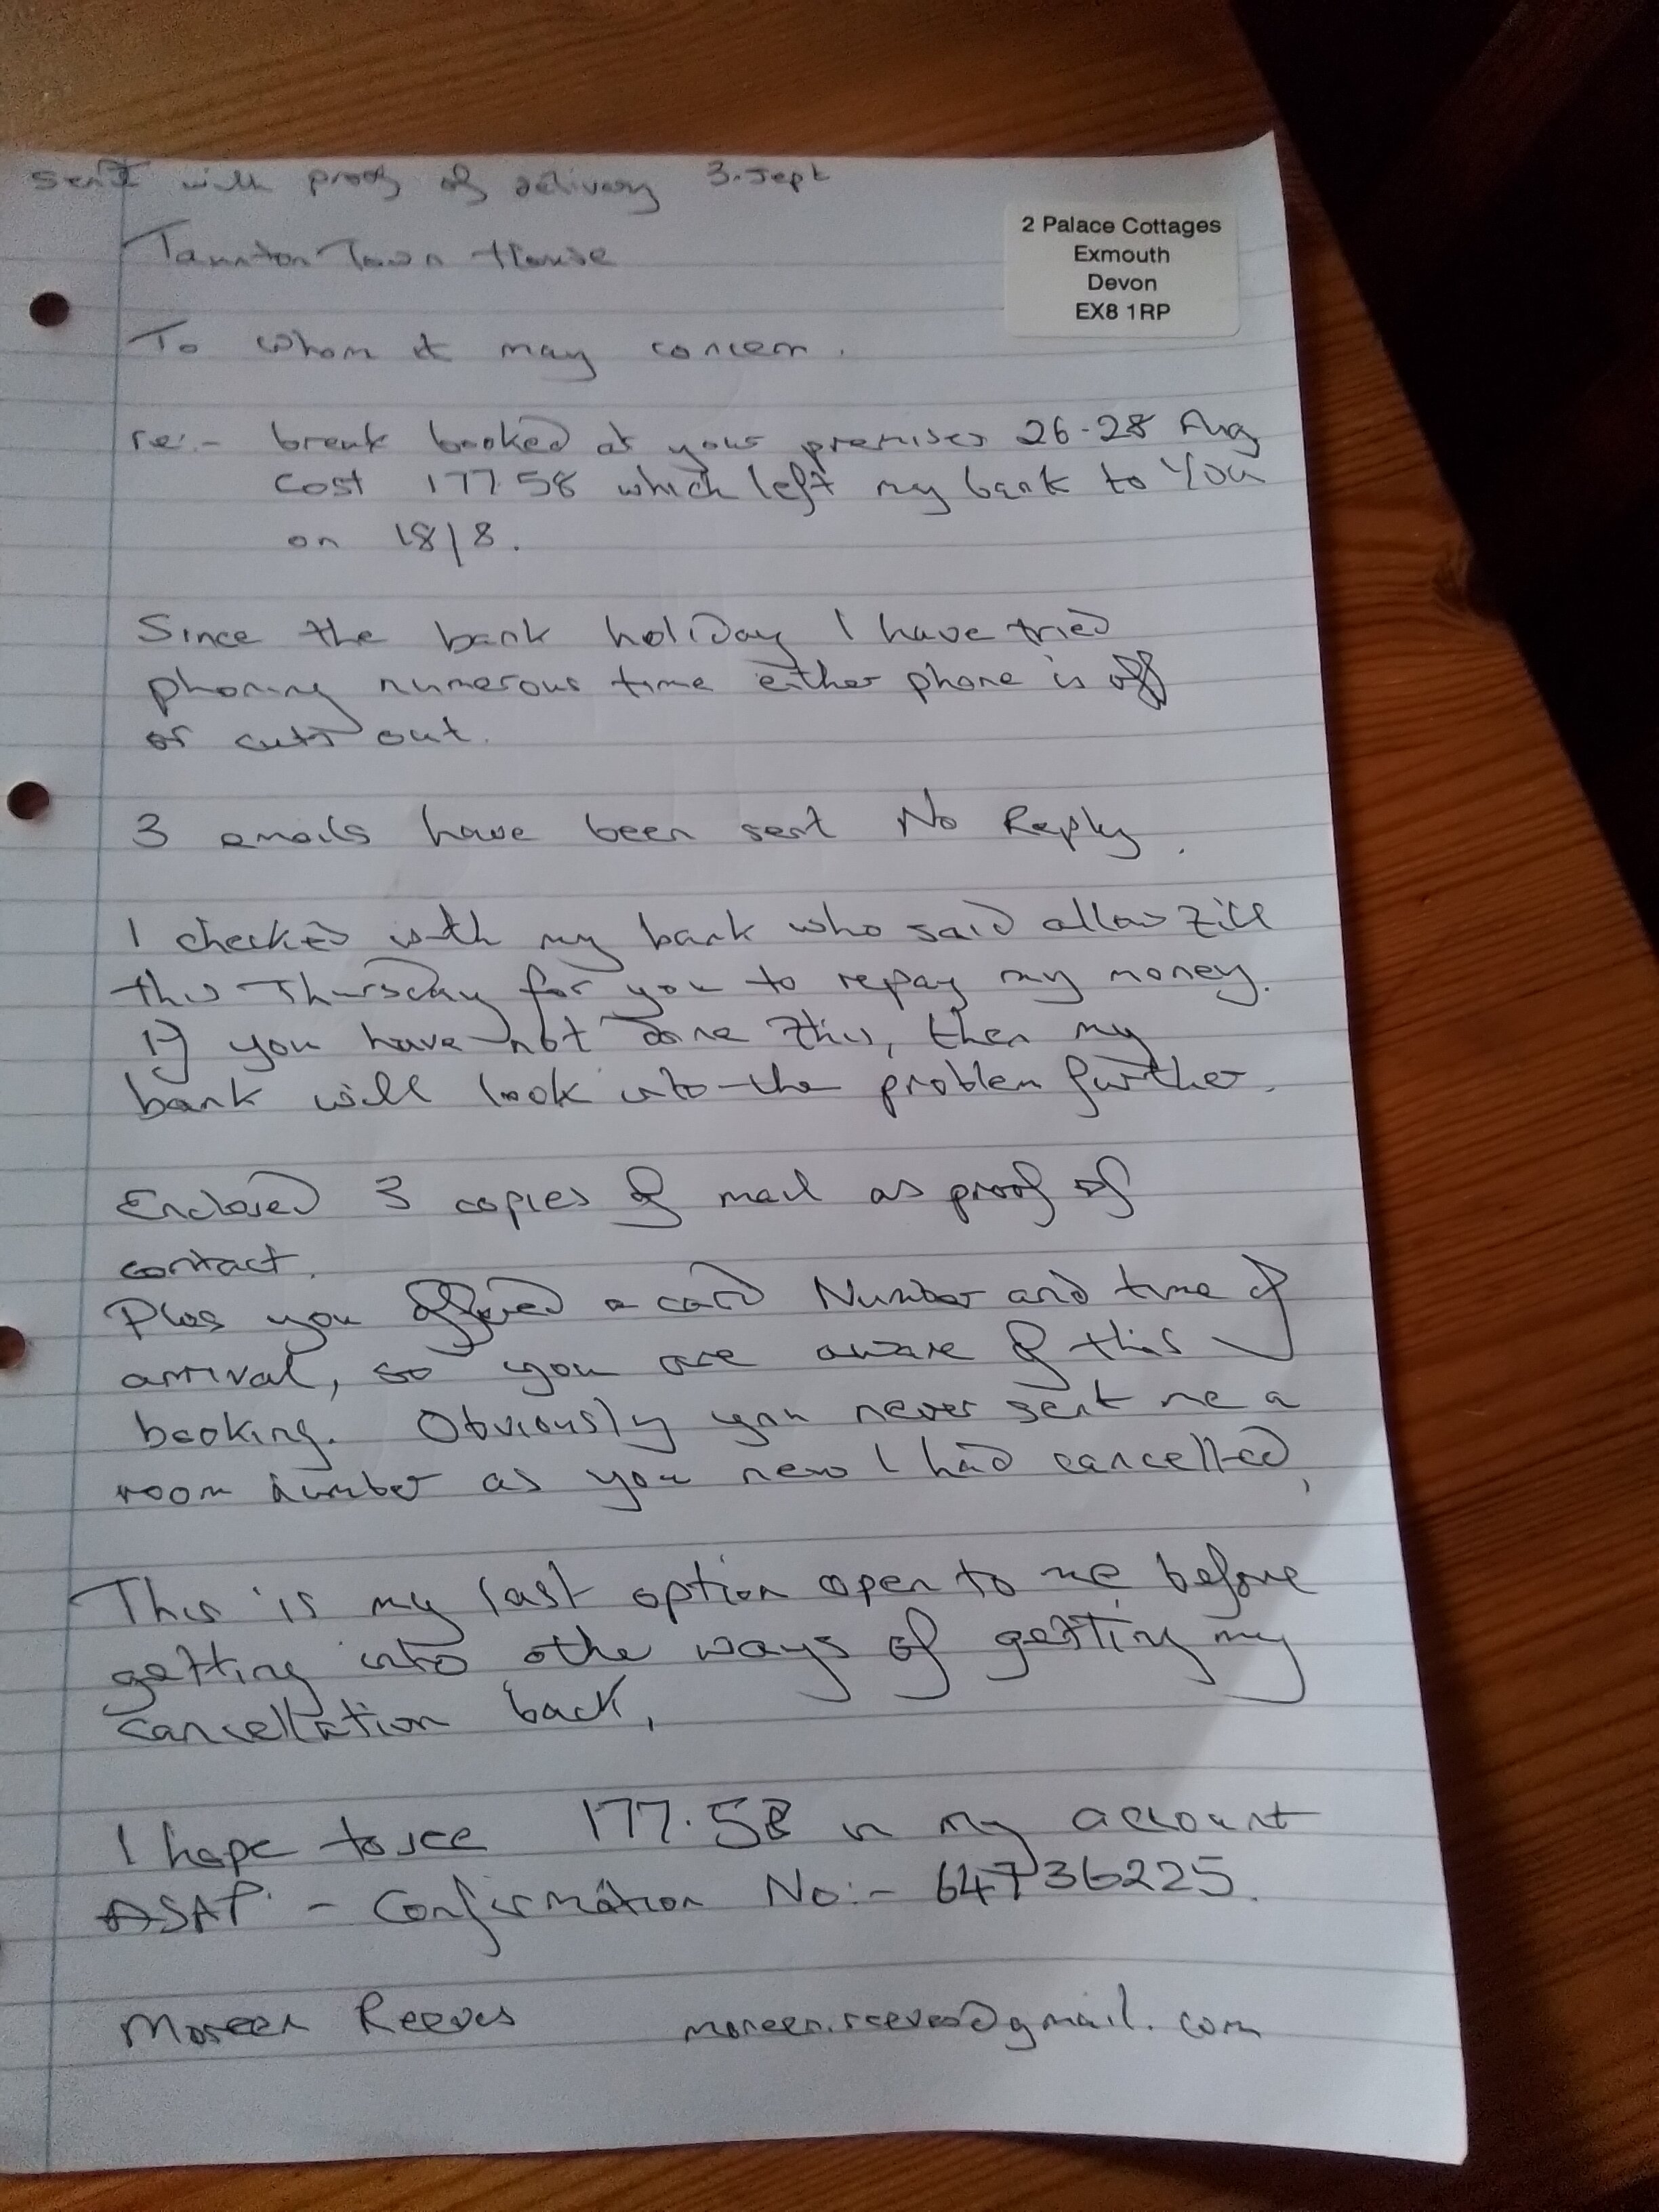 sent with proof of delivery 3. Sept
2 Palace Cottages
Exmouth
Devon
EX8 1RP
Taunton Town House
To whom it may concern.
re:- break booked at your premises 26-28 Aug
cost 177.58 which left my bank to You
on 18/8.
Since the bank holiday I have tried
phoning numerous time either phone is off
or cuts out.
3 emails have been sent No Reply.
I checked with my bank who said allow till
this Thursday for you to repay my money.
If you have not done this, then my
bank will look into the problem further.
Enclosed 3 copies of mail as proof of
contact.
Plus you offered a card Number and time of
arrival, so you are aware of this
booking. Obviously you never sent me a
room number as you new I had cancelled,
This is my last option open to me before
getting into othe ways of getting my
cancellation back,
I hope to see 177.58 in my account
ASAP. - Confirmation No:- 64736225.
Moreen Reeves moreen.reeves@gmail.com